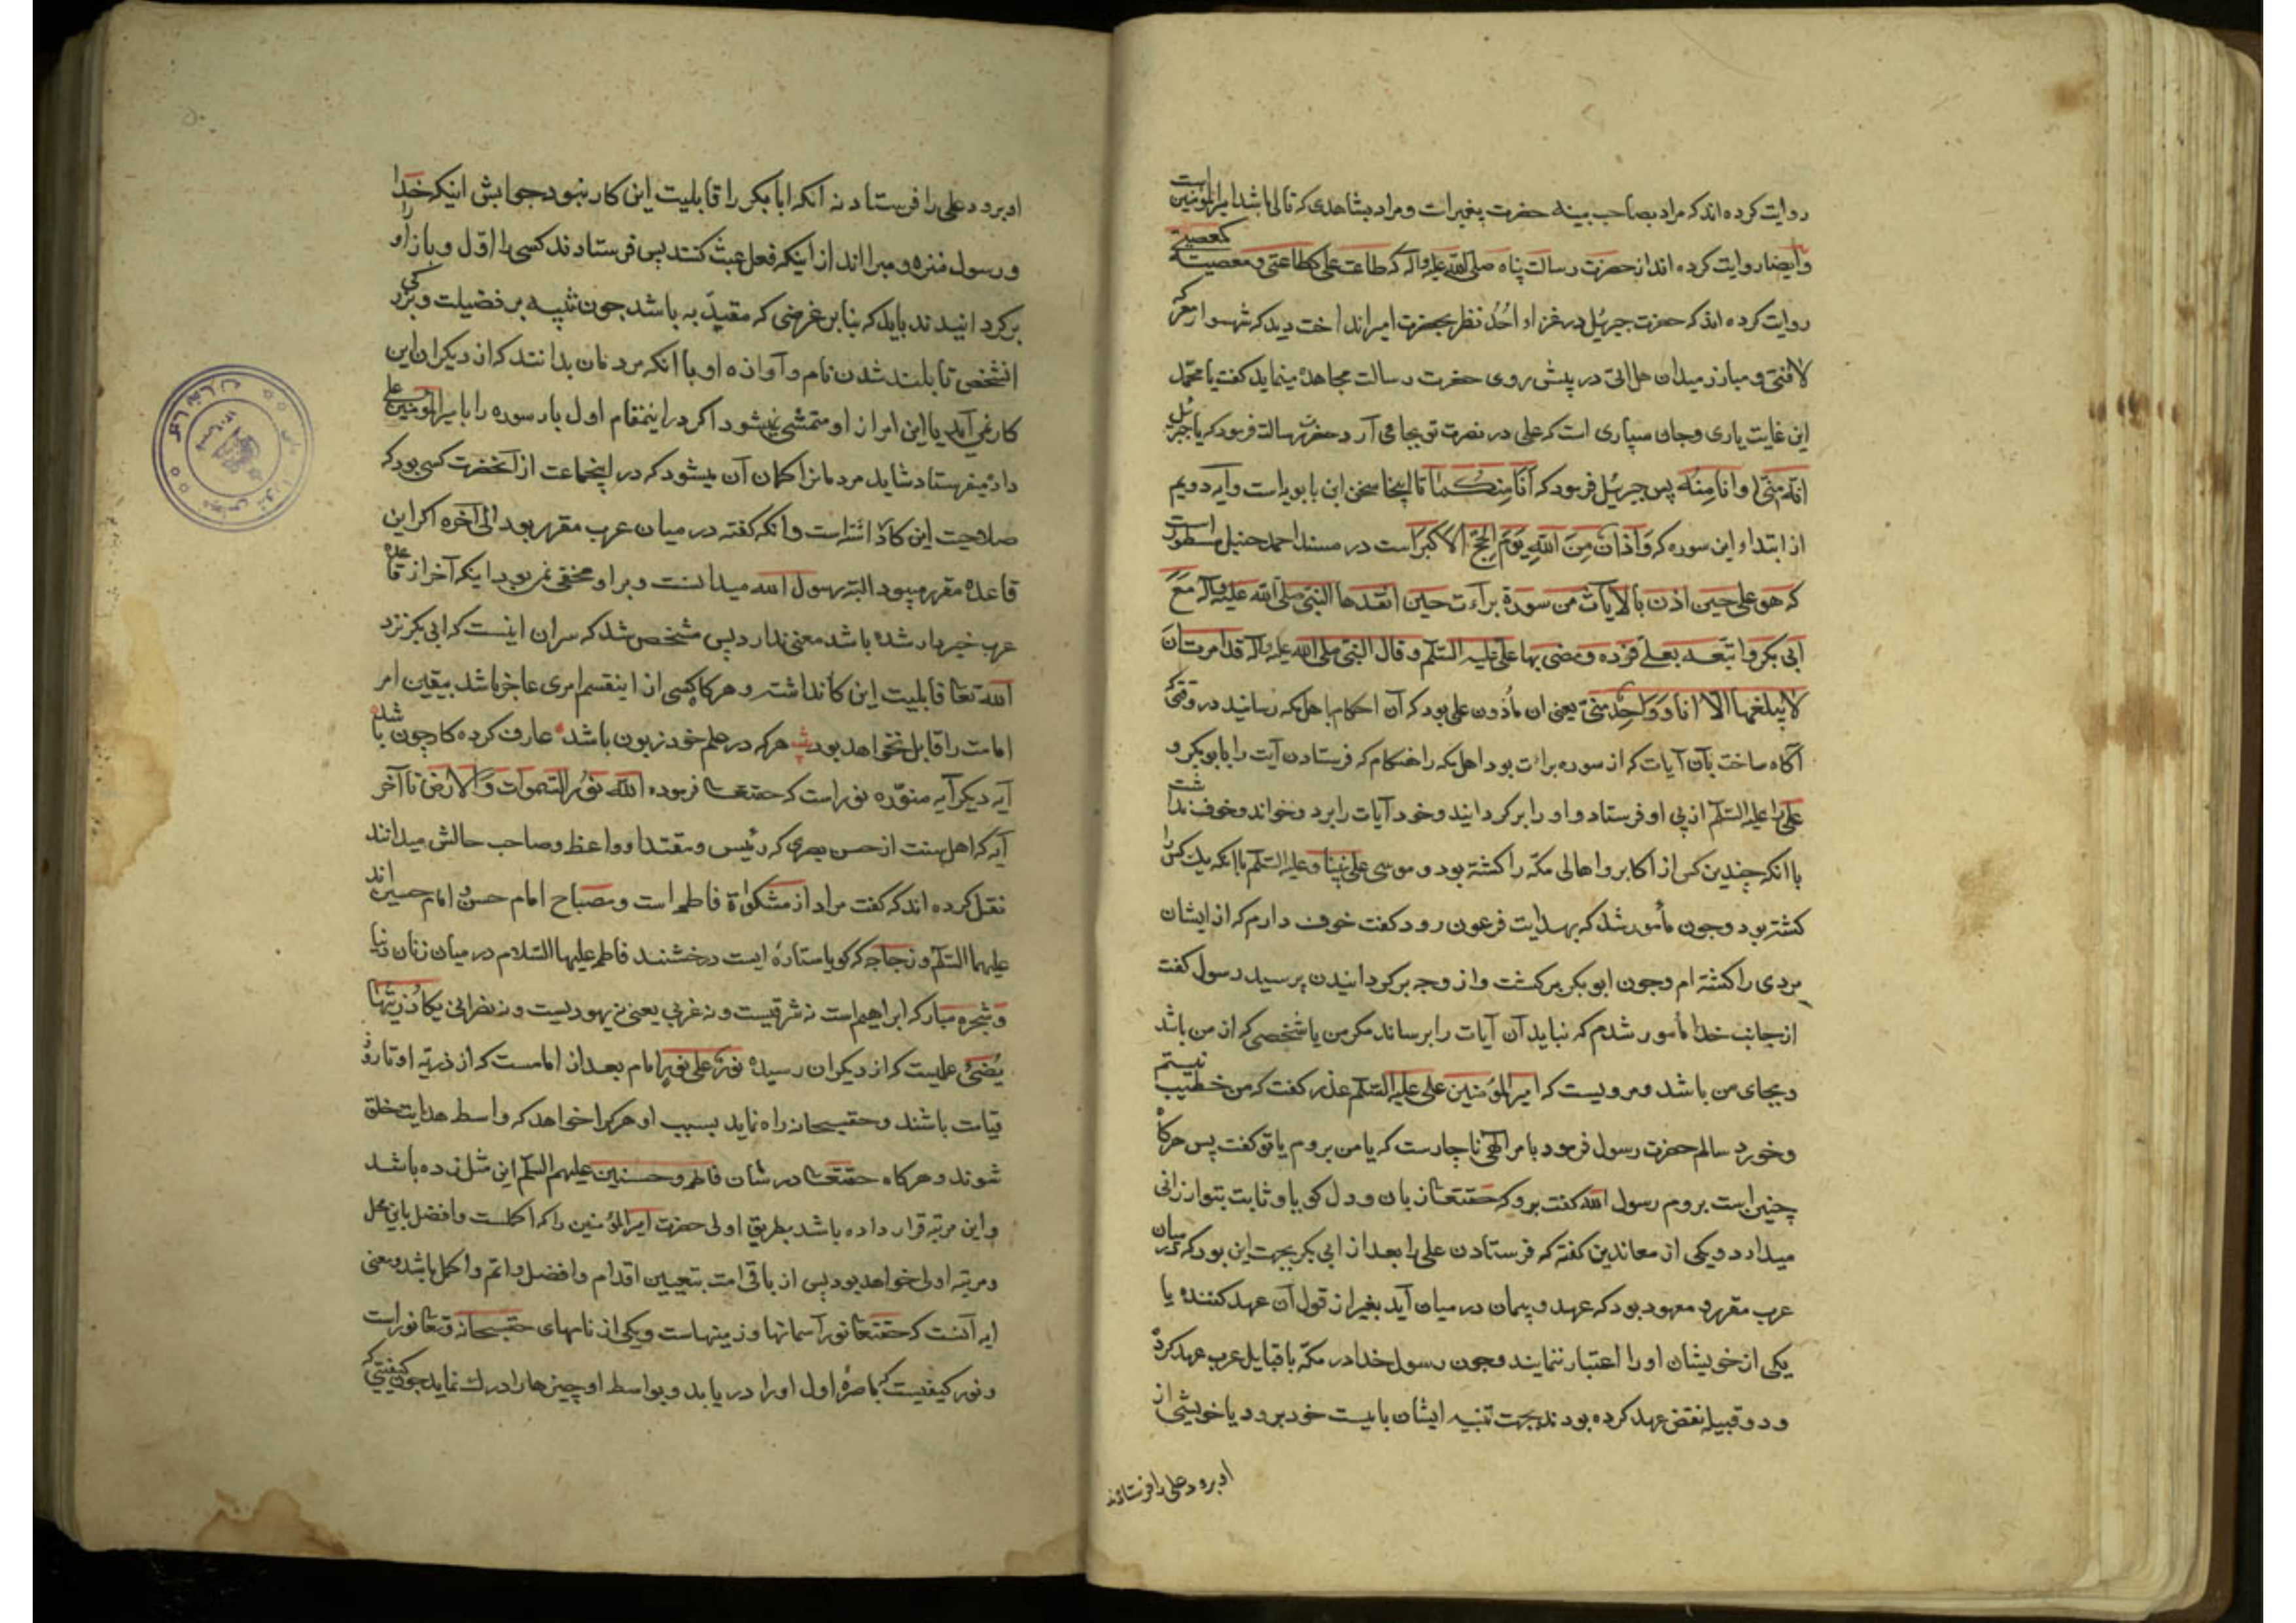 روایت کرده اند که مراد بصاحب بینه حضرت پیغمبر است و مراد بشاهدی که تالی باشد امیرالمؤمنین است
وایضا روایت کرده اند از حضرت رسالت پناه صلی الله علیه واله که طاعت علی کطاعتی و معصیته کمعصیتی
روایت کرده اند که حضرت جبرئیل در غزاء احد نظر بحضرت امیر انداخت دید که شهسوار معرکه
لافتی و مبارز میدان هل اتی در پیش روی حضرت رسالت مجاهده مینماید کفت یا محمد
این غایت یاری و جان سپاری است که علی در نصرت تو بجا می آرد حضرت رسالت فرمود که یا جبرئیل
انه منی وانا منه پس جبرئیل فرمود که انا منکما تا اینجا سخن ابن بابویه است وآیه دویم
از ابتداء این سوره که وَاَذان مِنَ اللهِ یَوْمَ الحَجّ الاکبر است در مسند احمد حنبل مسطور است
که هو علی حین اذن بالایات من سورة براءت حین انفدها النبی صلی الله علیه واله مع
ابی بکر واتبعه بعلی فرده ومضی بها علی علیه السلم وقال النبی صلی الله علیه واله قد امرت ان
لا یبلغها الا انا او واحد منی یعنی ان مأذون علی بود که آن احکام باهل مکه رسانید در وقتی که
آکاه ساخت بآن آیات که از سوره برات بود اهل مکه را هنکام که فرستادن آیت را بابوبکر و
علی را علیه السلم از پی او فرستاد و او را برکردانید و خود آیات را برد و خواند و خوف نداشت
با انکه چندین کس از اکابر و اهالی مکه را کشته بود و موسی علی نبینا و علیه السلم با انکه یک کس را
کشته بود و چون مأمور شد که بهدایت فرعون رود کفت خوف دارم که از ایشان
مردی را کشته ام و چون ابوبکر برکشت و از وجه برکردانیدن پرسید رسول کفت
از جانب خدا مأمور شدم که نباید آن آیات را برساند مکر من یا شخصی که از من باشد
و بجای من باشد و مرویست که امیرالمؤمنین علی علیه السلم عذر کفت که من خطیب نیستم
و خورد سالم حضرت رسول فرمود بامر الهی ناچارست که یا من بروم یا تو کفت پس هرکاه
چنین است بروم رسول الله کفت برو که حقتعالی زبان و دل کویا و ثابت بتو ارزانی
میدارد و یکی از معاندین کفته که فرستادن علی را بعد از ابی بکر بجهت این بود که در میان
عرب مقرر و معهود بود که عهد و پیمان در میان آید بغیر از قول آن عهد کننده یا
یکی از خویشان او را اعتبار ننمایند و چون رسول خدا در مکه با قبایل عرب عهد کرده
و دو قبیله نقض عهد کرده بودند بجهت تنبیه ایشان بایست خود برود یا خویشی از
او برود علی را فرستاد نه
او برود علی را فرستاد نه آنکه ابابکر را قابلیت این کار نبود جوابش اینکه خدا
و رسول منزه و مبرا اند از اینکه فعل عبث کنند پس فرستادند کسی را اول و باز او را
برکردانیدند باید که بنا بر غرضی که مقید به باشد چون تنبیه بر فضیلت و بزرکی
انشخص تا بلند شدن نام و آوازه او با انکه مردمان بدانند که از دیکران این
کار نمی آید یا این امر از او متمشی نمیشود اکر در اینمقام اول بار سوره را بامیرالمؤمنین علی
داده میفرستاد شاید مردمانرا کمان آن میشود که در اینجماعت از آنحضرت کسی بود که
صلاحیت این کار داشته است و انکه کفته در میان عرب مقرر بود الی آخره اکر این
قاعده مقرر میبود البته رسول الله میدانست و بر او مخفی نمی بود اینکه آخر از قاعده
عرب خبردار شده باشد معنی ندارد پس مشخص شد که سر آن اینست که ابی بکر نزد
الله تعا قابلیت این کار نداشته و هرکاه کسی از اینقسم امری عاجز باشد بیقین امر
امامت را قابل نخواهد بود هرکه در علم خود زبون باشد عارف کرده کار چون باشد
آیه دیکر آیه منوره نور است که حقتعا فرموده الله نور السموات والارض تا آخر
آیه که اهل سنت از حسن بصری که رئیس و مقتدا و واعظ و صاحب حالش میدانند
نقل کرده اند که کفت مراد از مشکواة فاطمه است و مصباح امام حسن و امام حسین اند
علیهما السلم و زجاجه که کویا ستاره ایست درخشنده فاطمه علیها السلام در میان زنان دنیا
و شجره مبارکه ابراهیم است نه شرقیست و نه غربی یعنی نه یهودیست و نه نصرانی یکاد زیتها
یضئ علمیست که از دیکران رسیده نور علی نور امام بعد از امامست که از ذریه او تا روز
قیامت باشند و حقسبحانه راه نماید بسبب او هرکرا خواهد که واسطه هدایت خلق
شوند و هرکاه حقتعا در شان فاطمه و حسنین علیهم السلم این مثل زده باشد
و این مرتبه قرار داده باشد بطریق اولی حضرت امیرالمؤمنین را که اکملست و افضل باین محل
و مرتبه اولی خواهد بود پس از باقی امت بتعیین اقدام و افضل و اتم و اکمل باشد و معنی
ایه آنست که حقتعا نور آسمانها و زمینهاست و یکی از نامهای حقسبحانه و تعا نور است
و نور کیفیست که باصره اول او را دریابد و بواسطه او چیزها را درک نماید چون کیفیتی که